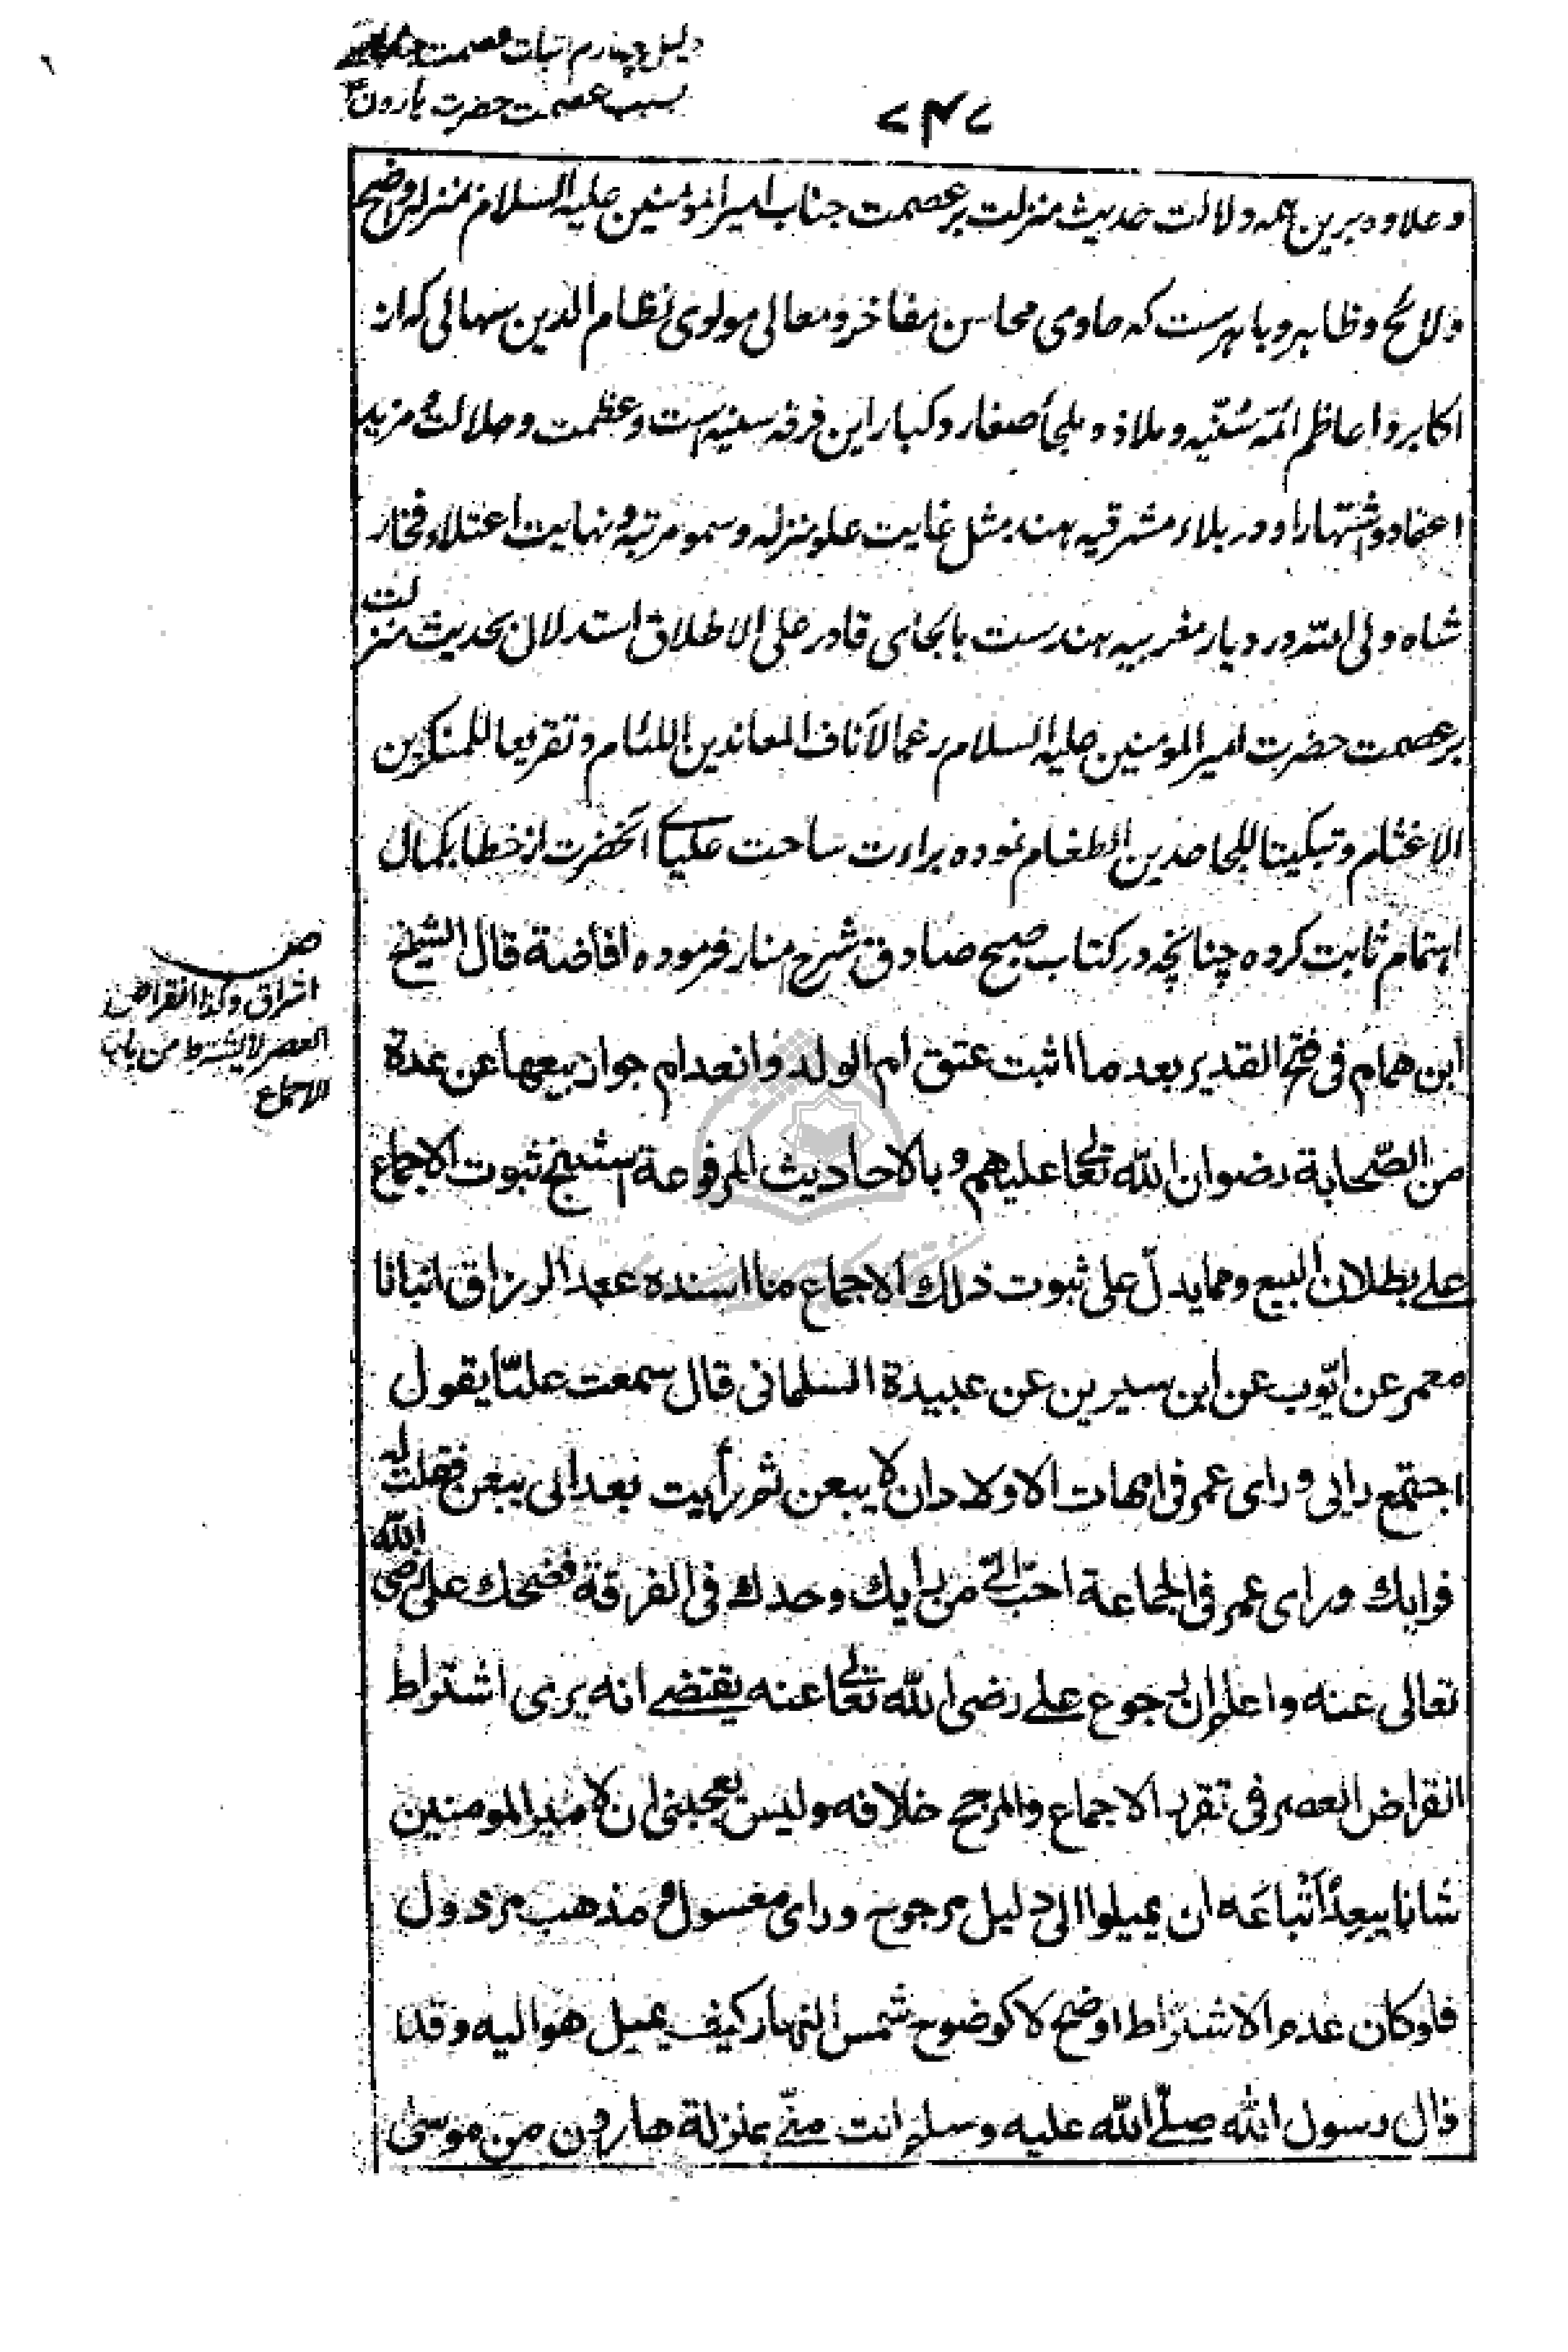 دلیل چهارم اثبات عصمت جناب امیر
بسبب عصمت حضرت هارون
۷۴۷
و علاوه برین همه دلالت حدیث منزلت بر عصمت جناب امیرالمؤمنین علیه السلام بمنزله واضح
و لائح و ظاهر و باهرست که حاوی محاسن مفاخر و معالی مولوی نظام الدین سهالی که از
اکابر و اعاظم ائمه سُنّیه و ملاذ و ملجأ صغار و کبار این فرقه سنیه است و عظمت و جلالت و مزید
اعتماد و اشتهار او در بلاد مشرقیه هند مثل غایت علو منزله و سمو مرتبه و نهایت اعتلاء فخار
شاه ولی الله در دیار مغربیه هندست بالجای قادر علی الاطلاق استدلال بحدیث منزلت
بر عصمت حضرت امیر المومنین علیه السلام رغما لآناف المعاندین اللئام و تقریعا للمنکرین
الاغثام و تبکیتا للجاحدین الطغام نموده براءت ساحت علیای آنحضرت از خطا بکمال
اهتمام ثابت کرده چنانچه در کتاب صبح صادق شرح منار فرموده افاضة قال الشیخ
ابن همام فی فتح القدیر بعد ما اثبت عتق ام الولد و انعدام جواز بیعها عن عدة
من الصّحابة رضوان الله تعالی علیهم و بالاحادیث المرفوعة استنتج ثبوت الاجماع
علی بطلان البیع و مما یدلّ علی ثبوت ذلك الاجماع ما اسنده عبد الرزاق انبانا
معمر عن ایّوب عن ابن سیرین عن عبیدة السلمانی قال سمعت علیّا یقول
اجتمع رایی و رای عمر فی امهات الاولاد ان لا یبعن ثم رأیت بعد ان یبعن فقلت له
فرایك و رای عمر فی الجماعة احبّ الیّ من رایك وحدك فی الفرقة فضحك علی رضی الله
تعالی عنه و اعلم ان رجوع علی رضی الله تعالی عنه یقتضی انه یری اشتراط
انقراض العصر فی تقرر الاجماع والمرجح خلافه ولیس یعجبنی ان لامیر المومنین
شانا یبعد اتباعه ان یمیلوا الی دلیل مرجوح و رای مغسول و مذهب مرذول
فلو کان عدم الاشتراط اوضح لا کوضوح شمس النهار کیف یمیل هو الیه و قد
قال رسول الله صلّی الله علیه و سلم انت منّی بمنزلة هارون من موسی
صـ
اشراق وکذا انقراض
العصر لا یشترط من باب
الاجماع